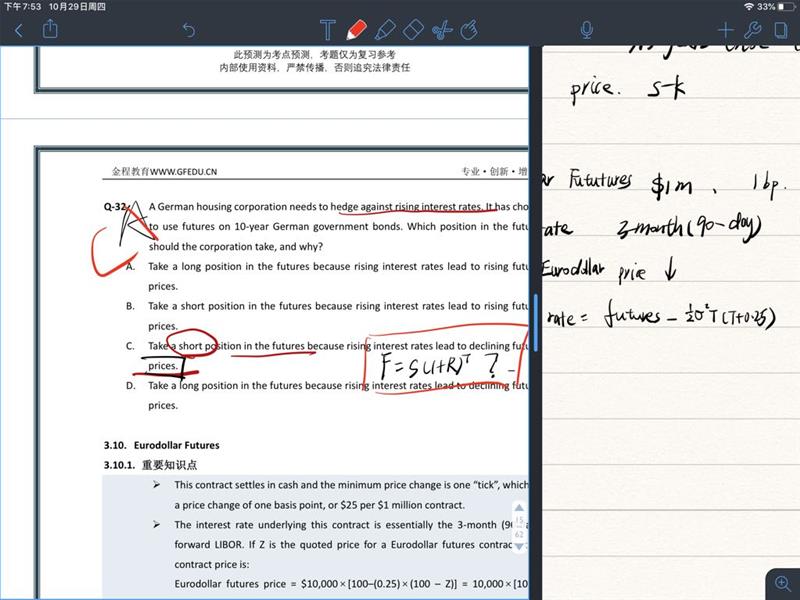 下午7:53 10月29日周四
33%
此预测为考点预测，考题仅为复习参考
内部使用资料，严禁传播，否则追究法律责任
金程教育WWW.GFEDU.CN
专业·创新·增
Q-32. A German housing corporation needs to hedge against rising interest rates. It has cho
to use futures on 10-year German government bonds. Which position in the futu
should the corporation take, and why?
A. Take a long position in the futures because rising interest rates lead to rising futu
prices.
B. Take a short position in the futures because rising interest rates lead to rising futu
prices.
C. Take a short position in the futures because rising interest rates lead to declining futu
prices.
F=S(1+R)^T ?
D. Take a long position in the futures because rising interest rates lead to declining futu
prices.
3.10. Eurodollar Futures
3.10.1. 重要知识点
➢ This contract settles in cash and the minimum price change is one “tick”, which
a price change of one basis point, or $25 per $1 million contract.
➢ The interest rate underlying this contract is essentially the 3-month (90
forward LIBOR. If Z is the quoted price for a Eurodollar futures contrac
contract price is:
Eurodollar futures price = $10,000×[100–(0.25)×(100 – Z)] = 10,000×[10
15
62
C
A
price. S-K
ar Fututures $1m、 1bp.
rate 3-month(90-day)
Eurodollar price ↓
rate = futures - ½σ²T(T+0.25)